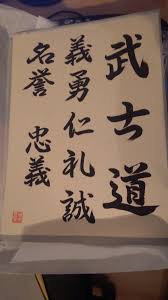 武士道
義勇仁礼誠
名誉 忠義